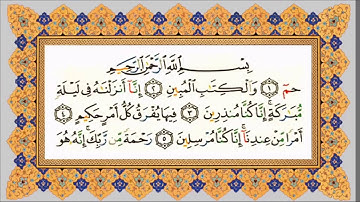 بِسْمِ اللَّهِ الرَّحْمَٰنِ الرَّحِيمِ
حمٓ ۝١ وَالْكِتَٰبِ الْمُبِينِ ۝٢ إِنَّآ أَنزَلْنَٰهُ فِى لَيْلَةٍ
مُّبَٰرَكَةٍ ۚ إِنَّا كُنَّا مُنذِرِينَ ۝٣ فِيهَا يُفْرَقُ كُلُّ أَمْرٍ حَكِيمٍ ۝٤
أَمْرًا مِّنْ عِندِنَآ ۚ إِنَّا كُنَّا مُرْسِلِينَ ۝٥ رَحْمَةً مِّن رَّبِّكَ ۚ إِنَّهُۥ هُوَ